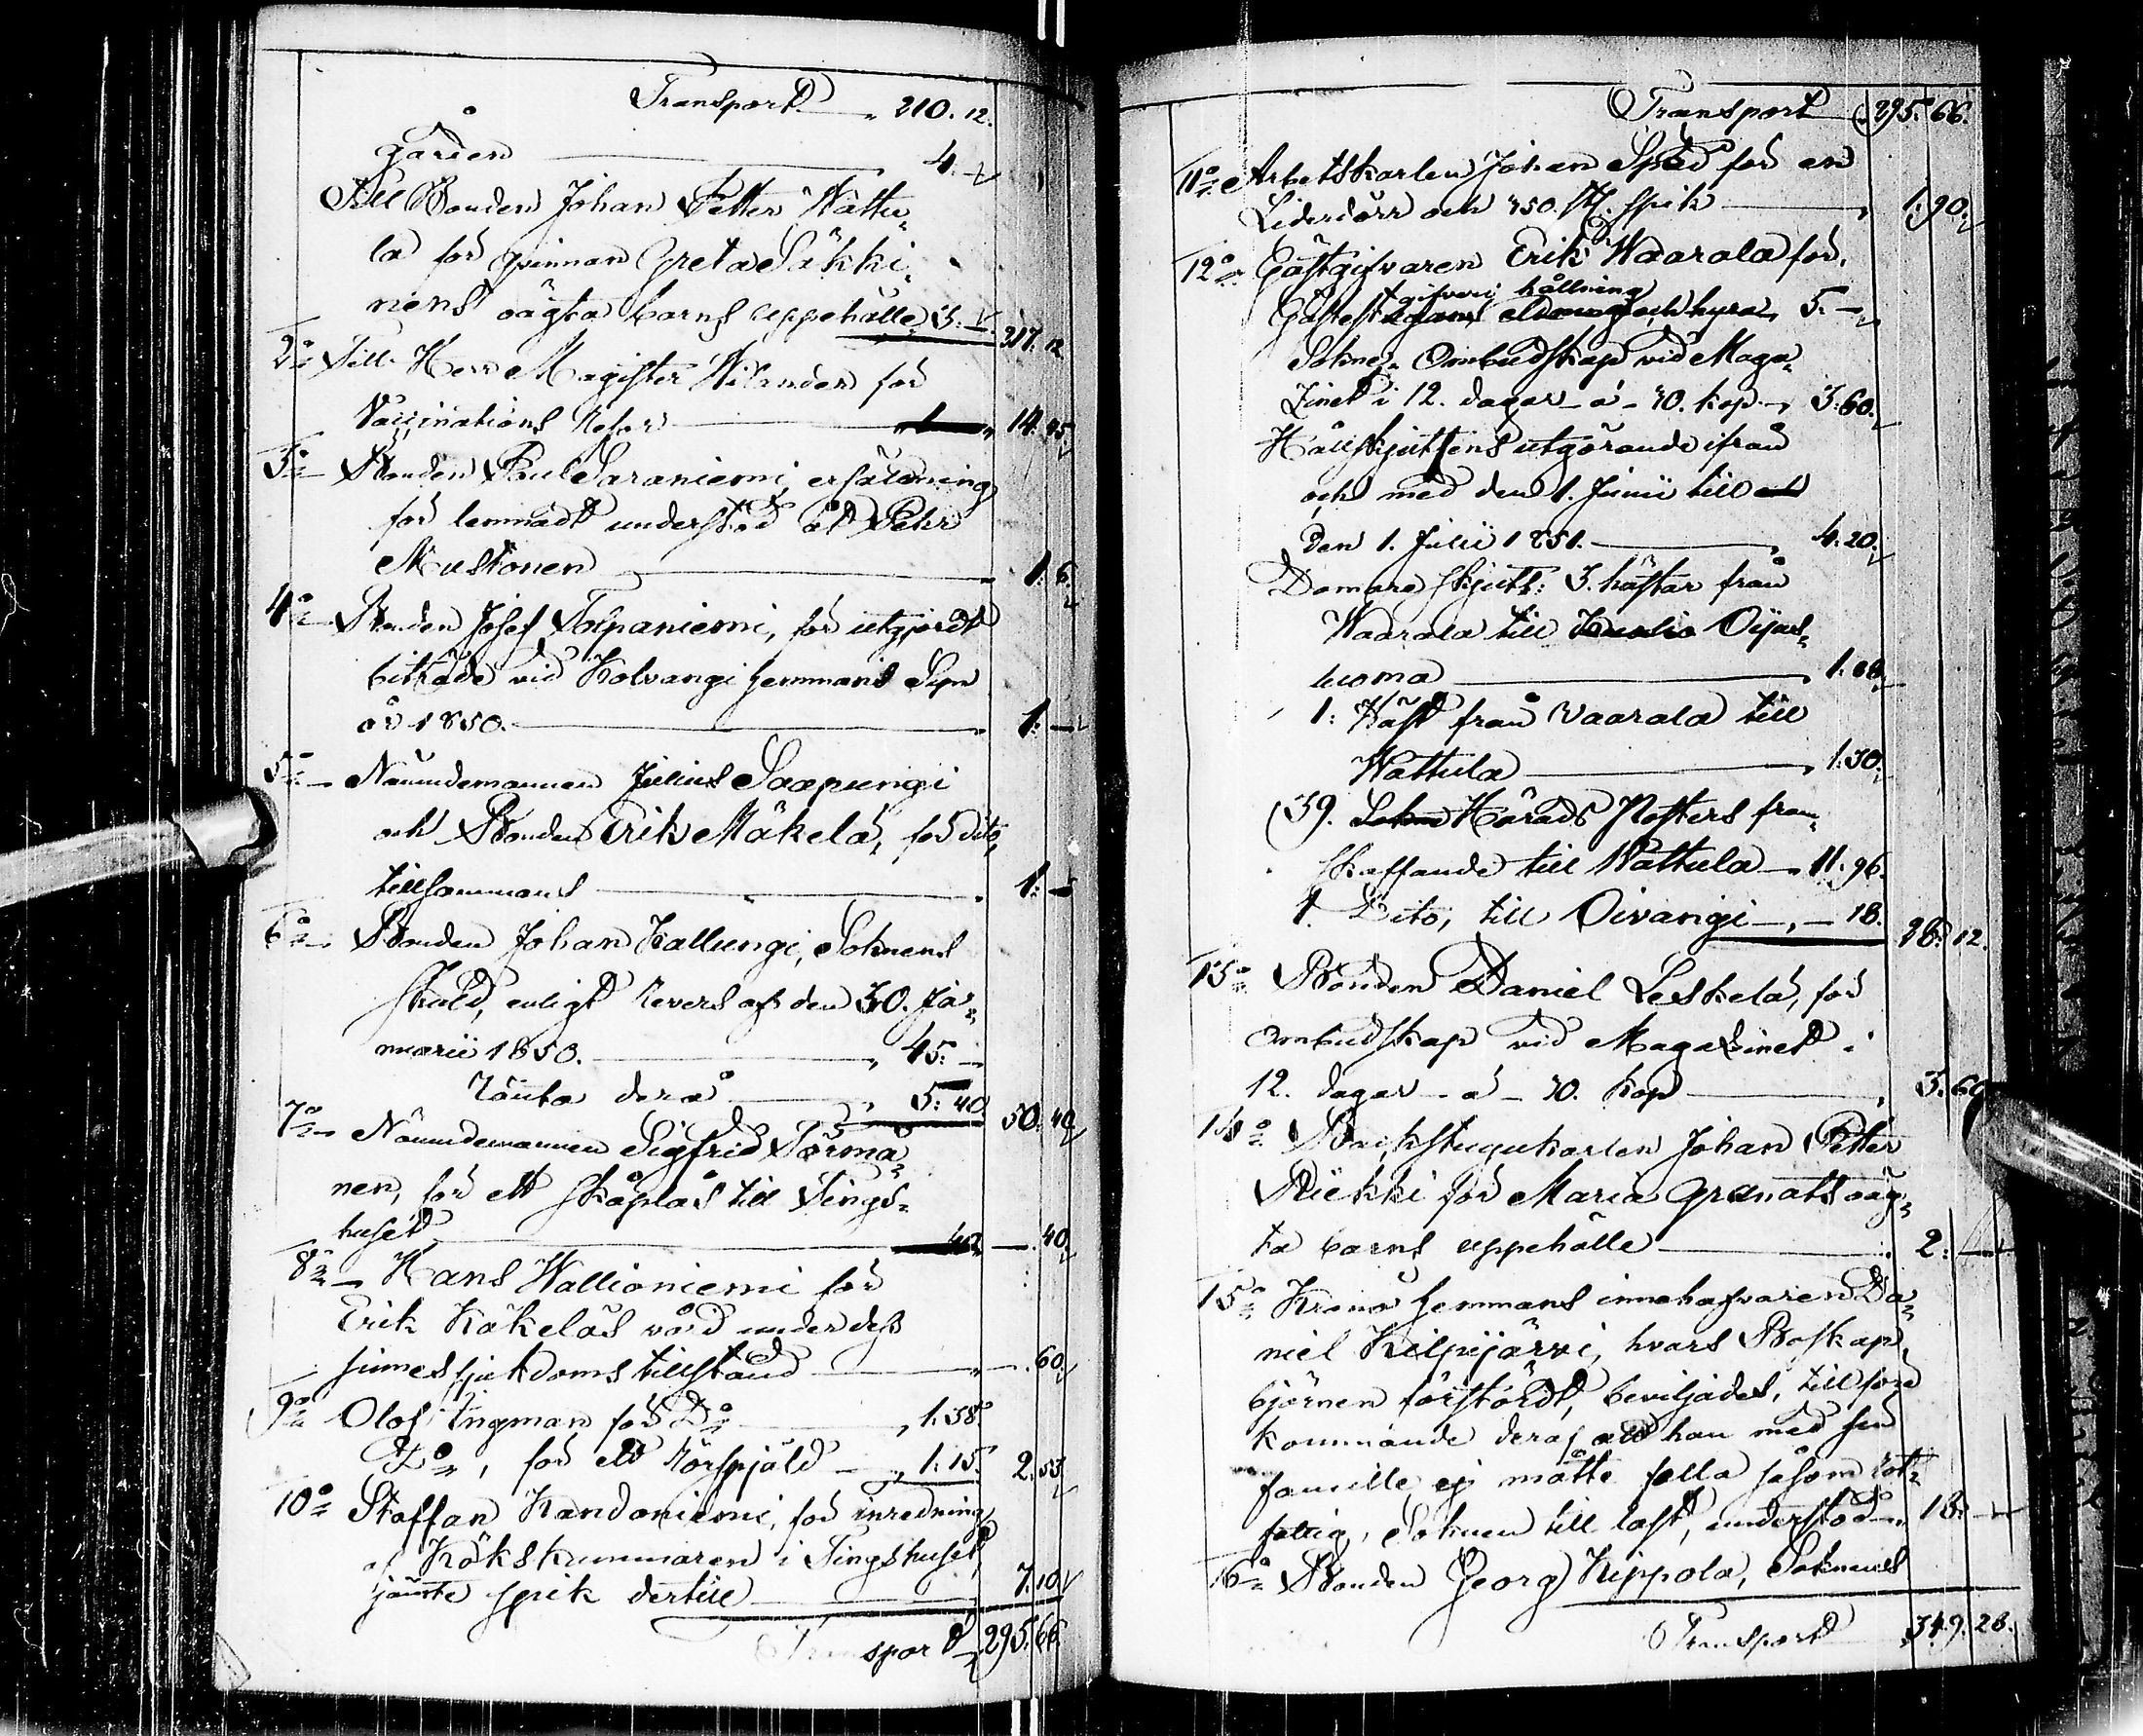 Transport " 210. 12.
gården 4. -
Till Bonden Johan Petter Wattu-
la för qvinnan Greta Säkki-
nens oägta barns uppehälle 3. - 217. 12
2:o Till Herr Magister Wilander för
Vaccinations Resor 14. 45
3:o Bonden Paul Saraniemi, ersättning
för lemnadt understöd åt Pehr
Mustonen 1. 6.
4:o Bonden Josef Tolpaniemi, för utgjordt
biträde vid Kolvangi hemmans Syn
år 1850. 1: -
5:o Nämndemannen Julius Saapungi
och Bonden Erik Mäkelä, för dito,
tillsammans 1: -
6:o Bonden Johan Kallungi, Soknens
skuld, enligt Revers af den 30. Ja-
nuarii 1850. 45: -
Ränta derå 5: 40 50. 40
7:o Nämndemannen Sigfrid Törmä-
nen, för ett skåplås till Tings-
huset - . 40
8:o Hans Wallioniemi för
Erik Käkeläs vård under dess
sinnessjukdoms tillstånd - . 60
9:o Olof Ingman för D:o 1. 38
D:o, för ett Rörspjäld 1: 15. 2. 53
10:o Staffan Kandoniemi, för inredning
af Kökskammaren i Tingshuset,
jämte spik dertill 7. 10
Transport 295. 66
Transport 295. 66.
11:o Arbetskarlen Johan Späd för en
Liderdörr och 350. st. spik 1. 90.
12:o Gästgifvaren Erik Waarala för,
gifveri hållning
Gäste och hyra 5. -
Sokne-Ombudskap vid Maga-
zinet i 12. dagar à 30. kop. 3. 60.
Hållskjutsens utgörande ifrån
och med den 1. Junii till
den 1. Julii 1851. 4. 20.
Domare skjuts: 3. hästar från
Waarala till Oijus-
luoma 1. 88
1: Häst från Waarala till
Wattula 1. 30.
39. Härads Posters fram-
skaffande till Wattula 11. 96.
1. Dito, till Oivangi - 18. 28. 12.
13:o Bonden Daniel Leskelä, för
Ombudskap vid Magazinet i
12. dagar à 30. kop 3. 60
14:o Backstugukarlen Johan Petter
Riekki för Maria Granats oäg-
ta barns uppehälle 2: -
15:o Krono hemmans innehafvaren Da-
niel Kilpijärvi, hvars Boskap,
björnen förstördt, beviljades, till före-
kommande deraf att han med sin
famille ej måtte falla såsom rot-
fattig, Soknen till last, understöd 18: -
16:o Bonden Georg Kippola, Soknens
Transport 349. 28.